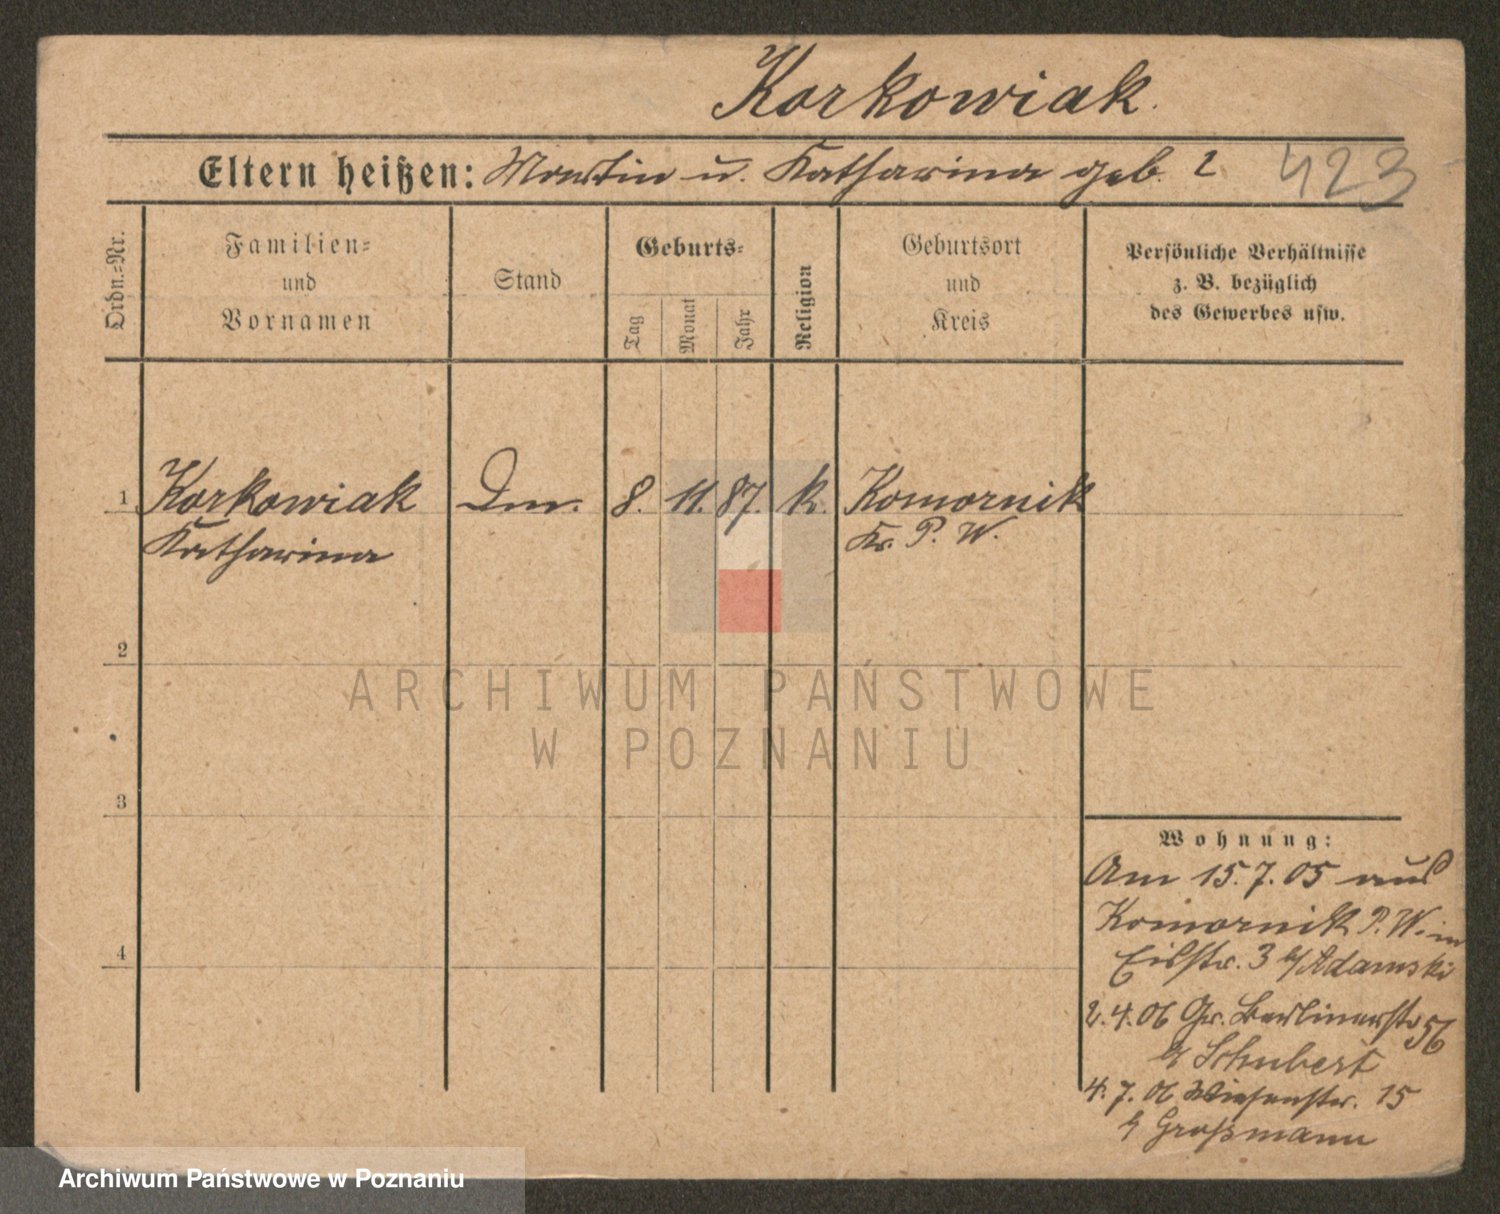 Korkowiak.
Eltern heißen: Martin u. Katharina geb. ?
423
Ordn.=Nr.
Familien=
und
Vornamen
Stand
Geburts=
Tag
Monat
Jahr
Religion
Geburtsort
und
Kreis
Persönliche Verhältnisse
z. B. bezüglich
des Gewerbes usw.
1 Korkowiak Dm. 8. 11. 87. k. Komornik
Katharina Kr. P. W.
2
ARCHIWUM PAŃSTWOWE
W POZNANIU
3
Wohnung:
Am 15.7.05 aus
Komornik P. W. in
Eibstr. 3 b/ Adamski
4
2.4.06 Gr. Berlinerstr 56
b/ Schubert
4.7.06 Wiesenstr. 15
b/ Großmann
Archiwum Państwowe w Poznaniu